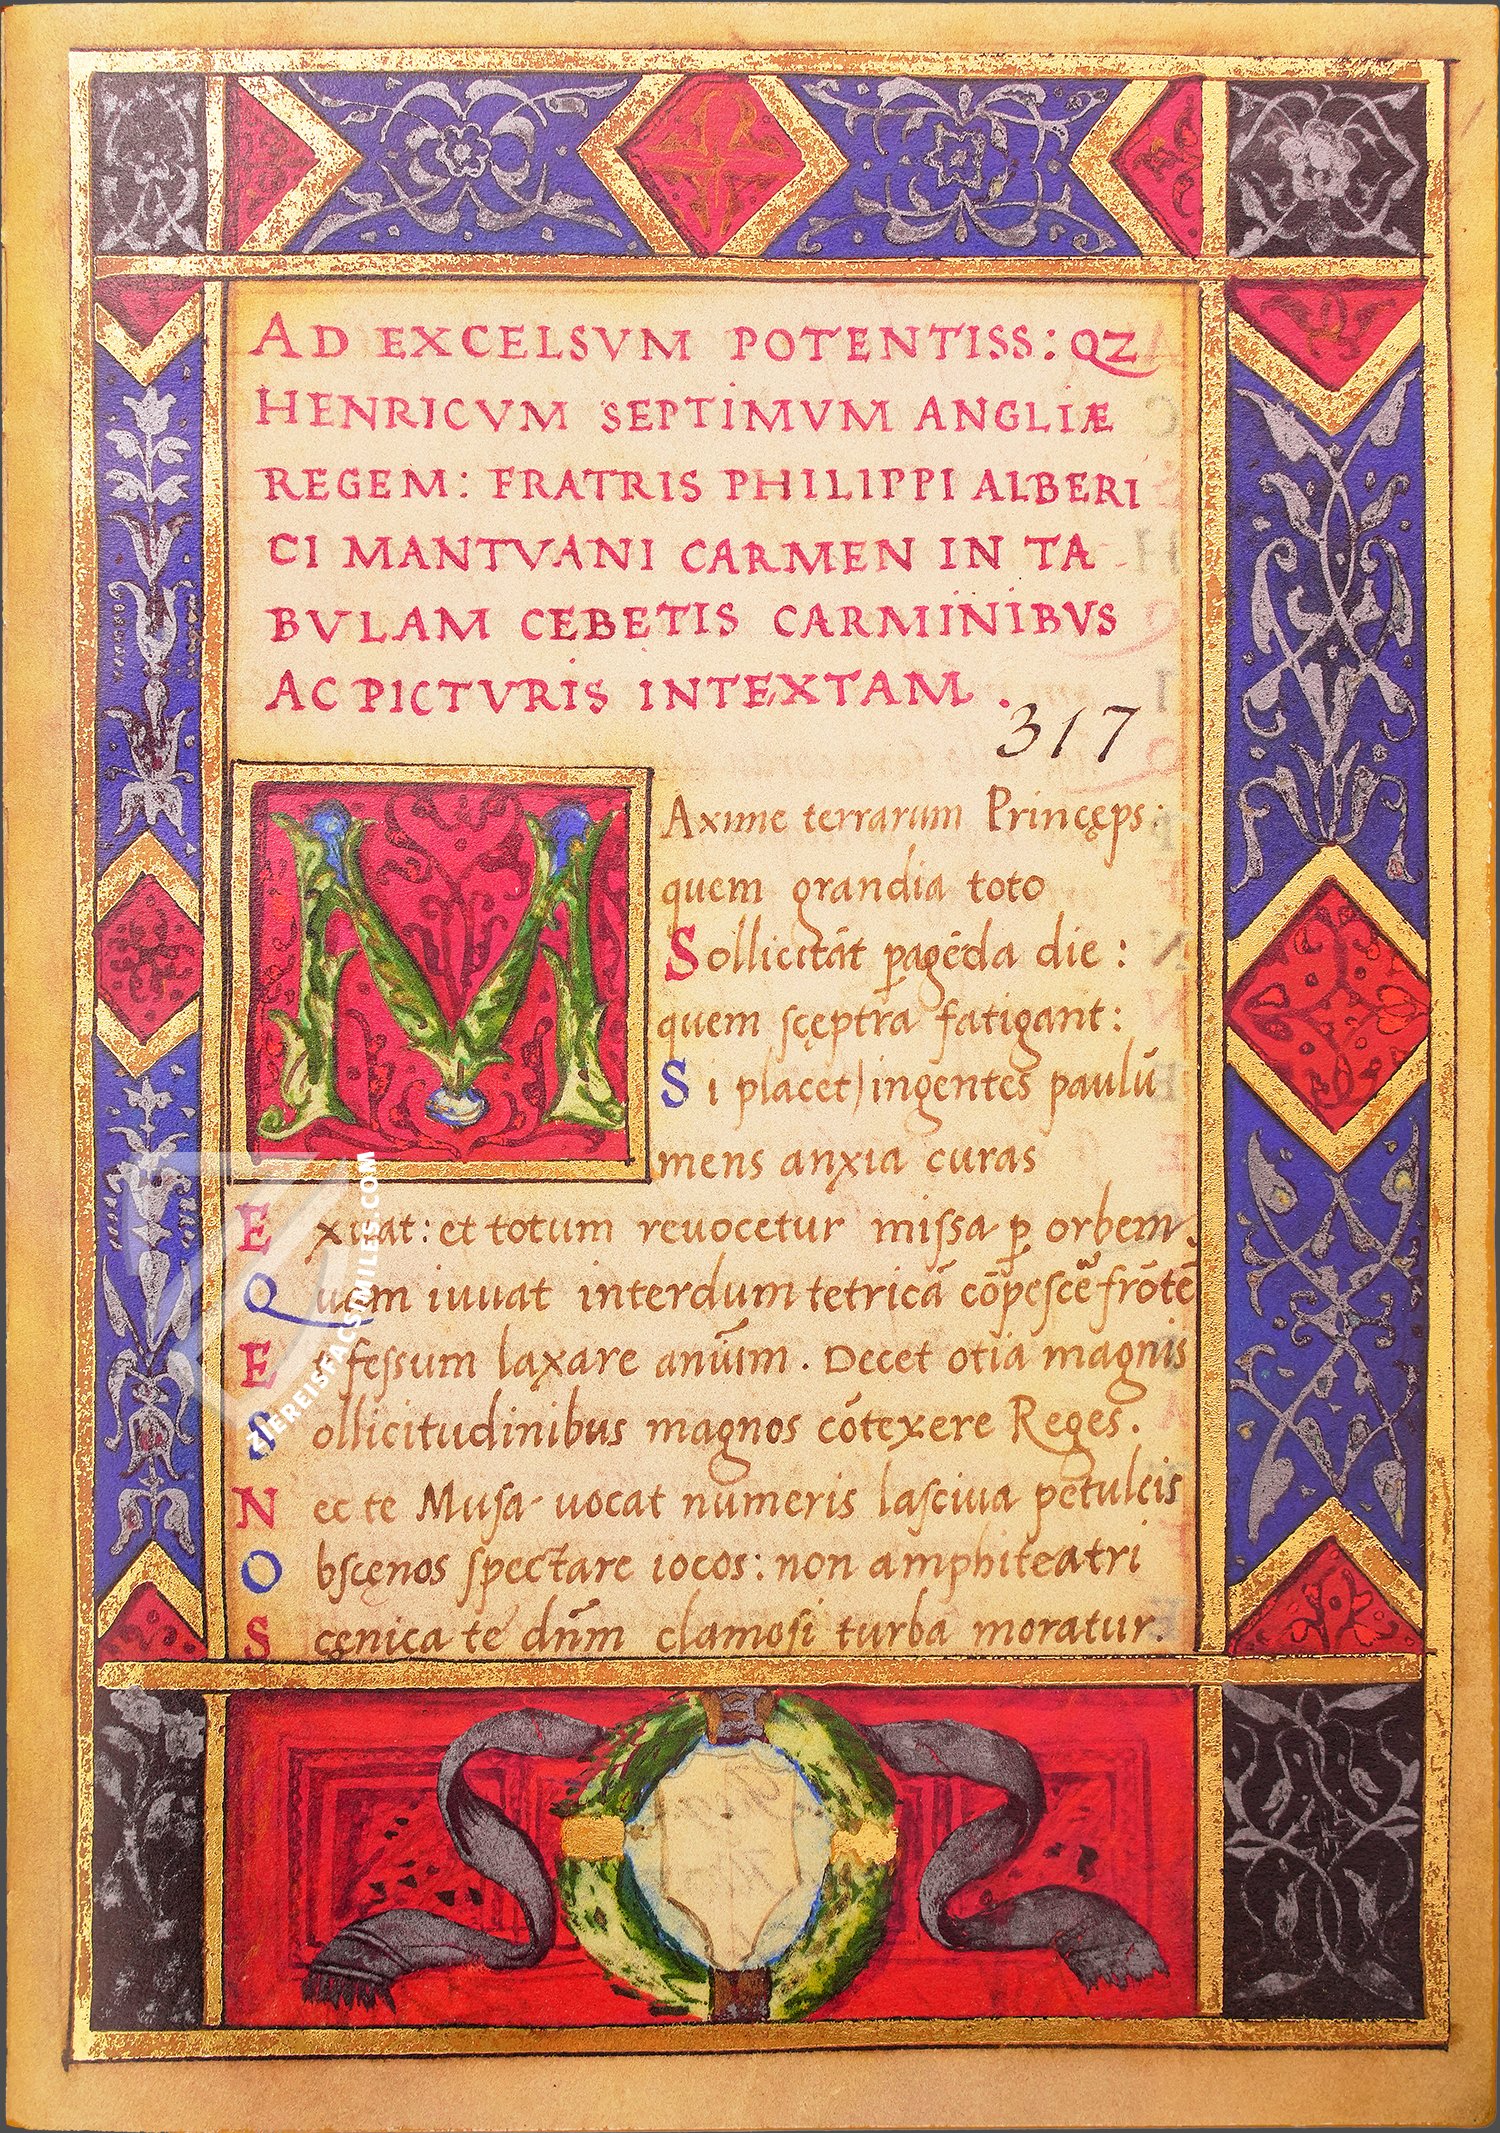 AD EXCELSVM POTENTISS: QZ
HENRICVM SEPTIMVM ANGLIÆ
REGEM: FRATRIS PHILIPPI ALBERI
CI MANTVANI CARMEN IN TA
BVLAM CEBETIS CARMINIBVS
AC PICTVRIS INTEXTAM.
317
MAxime terrarum Princęps:
quem grandia toto
Sollicitāt ꝑagēda die:
quem scęptra fatigant:
Si placet) ingentes paulū
mens anxia curas
Exuat: et totum reuocetur missa ꝑ orbem.
Quam iuuat interdum tetricā cōpescẽ frōtẽ
Et fessum laxare anīmū. Decet otia magnis
Sollicitudinibus magnos cōtexere Reges.
Nec te Musa uocat numeris lasciua petulcis
Obscęnos spectare iocos: non amphiteatri
Scęnica te dn̄m clamosi turba moratur.
ZIEREISFACSIMILES.COM